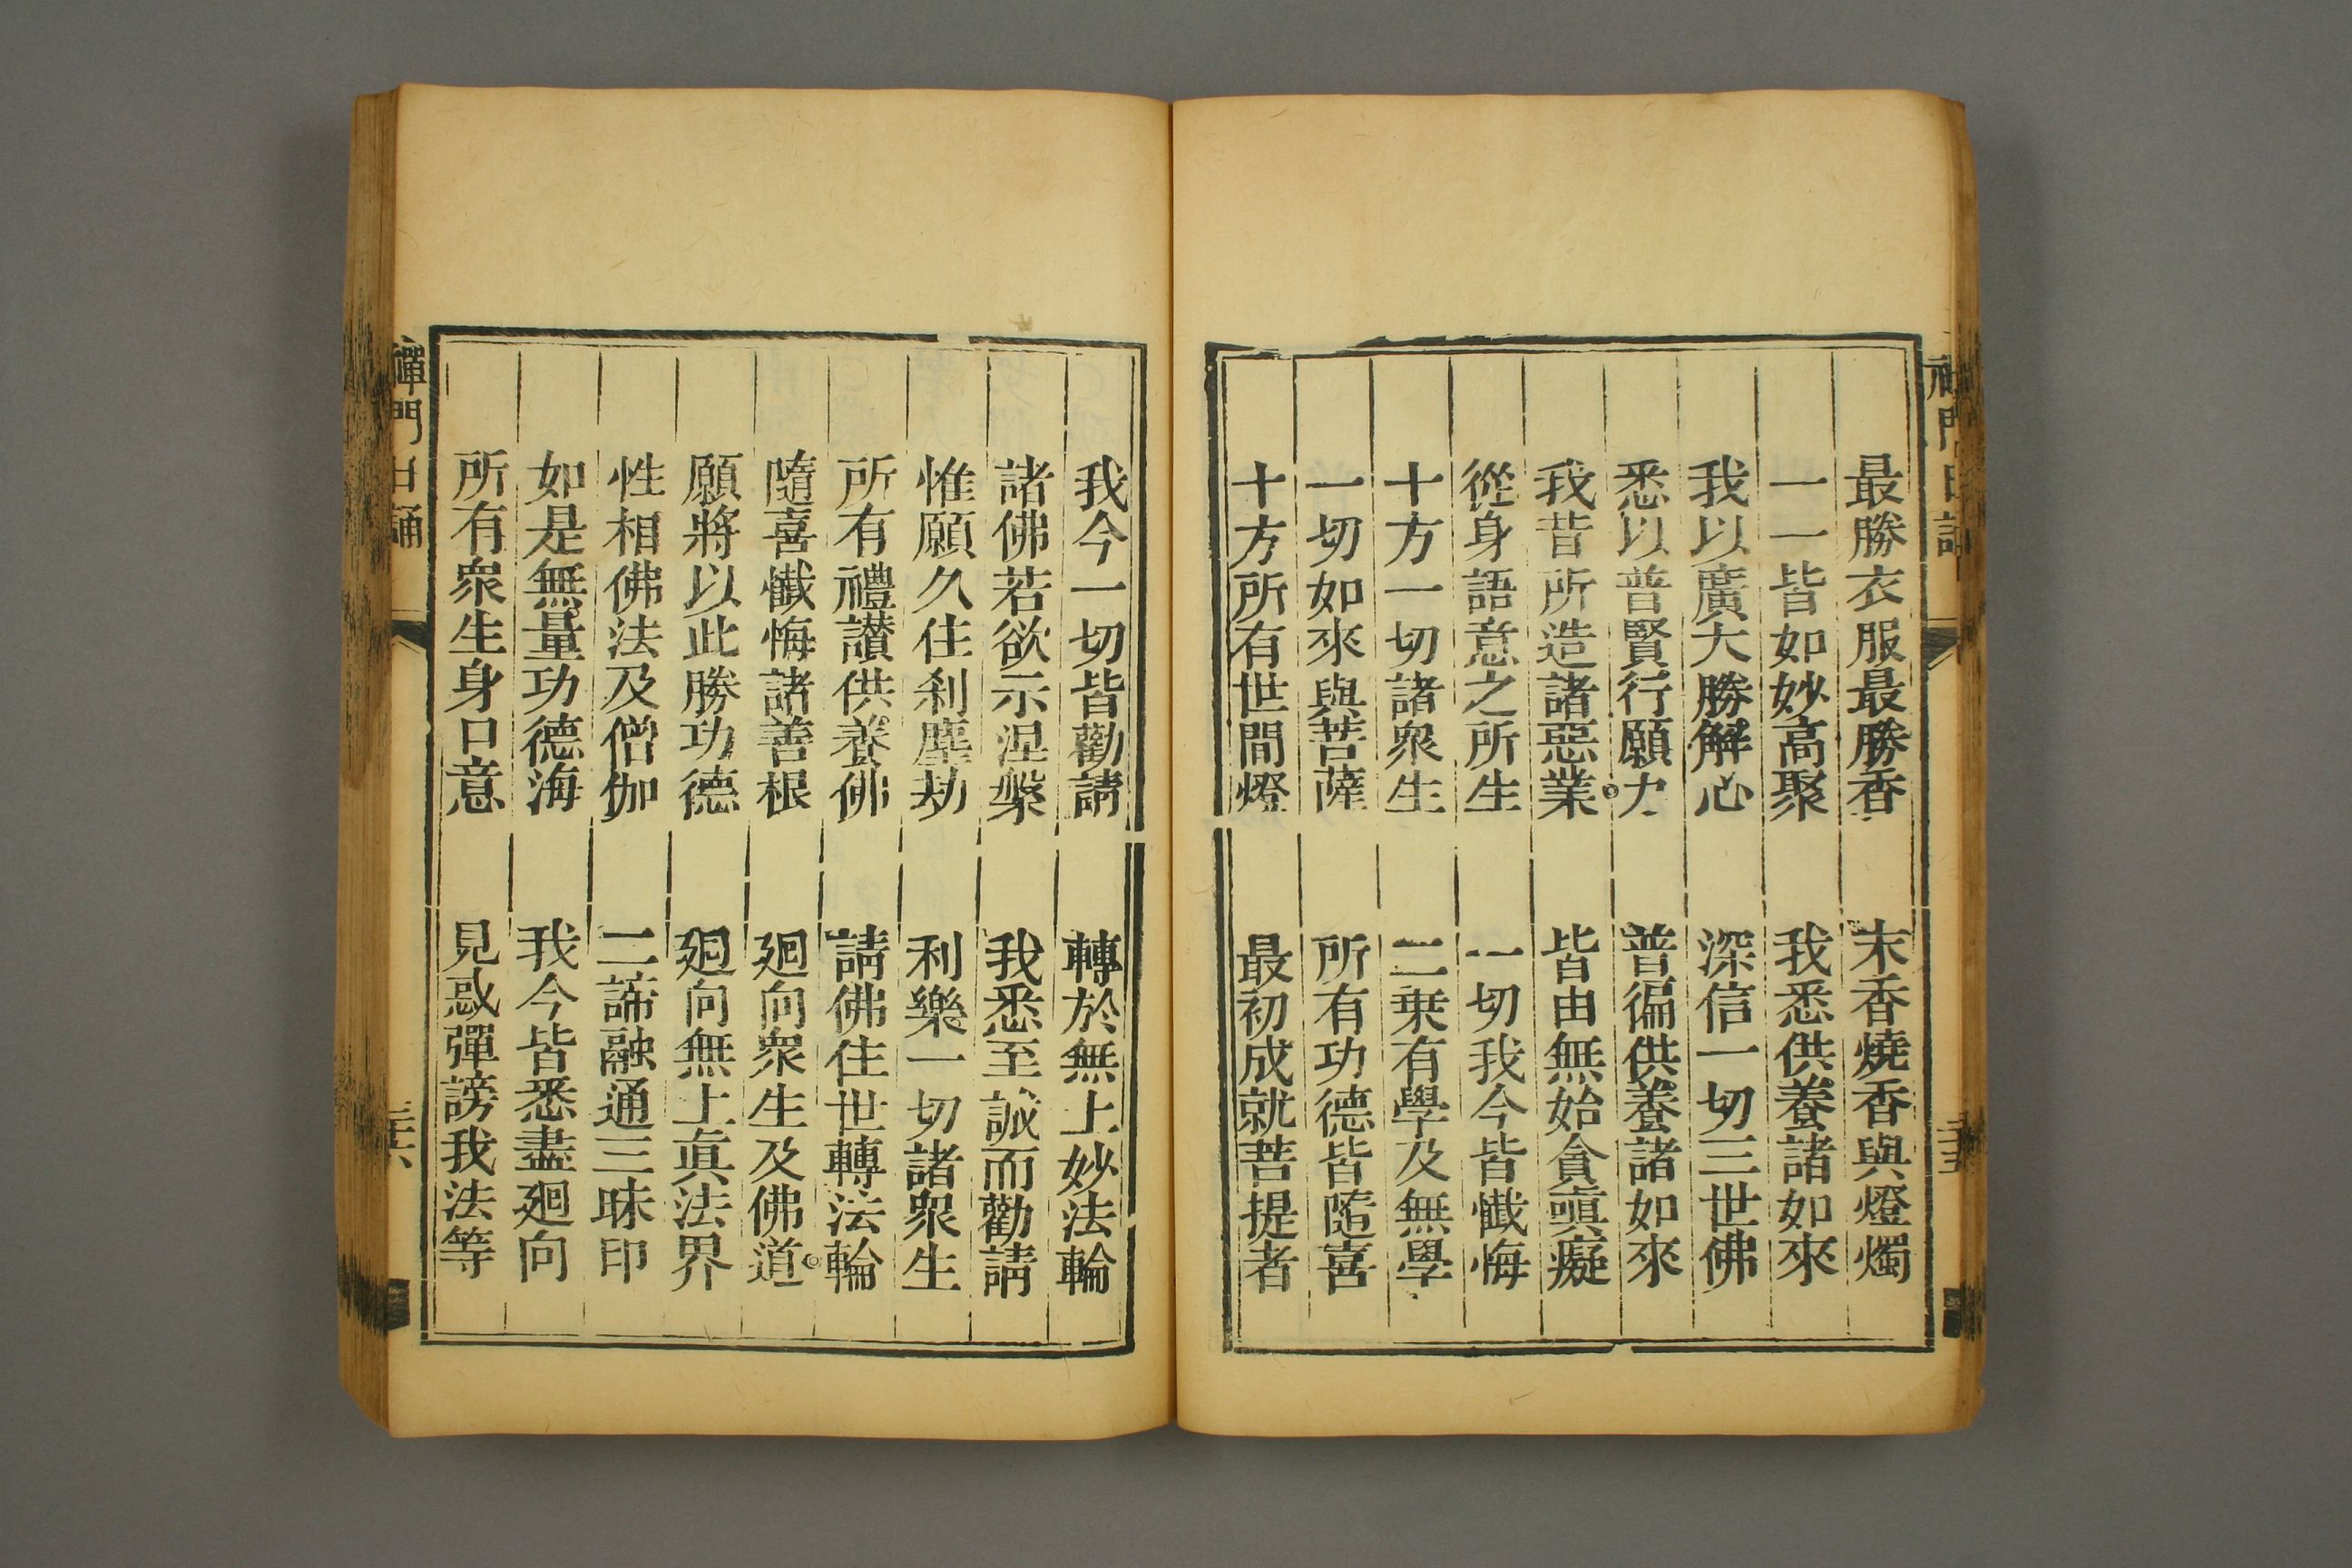 禪門日誦
三五
最勝衣服最勝香 末香燒香與燈燭
一一皆如妙高聚 我悉供養諸如來
我以廣大勝解心 深信一切三世佛
悉以普賢行願力 普徧供養諸如來
我昔所造諸惡業 皆由無始貪嗔癡
從身語意之所生 一切我今皆懺悔
十方一切諸衆生 二乗有學及無學
一切如來與菩薩 所有功德皆隨喜
十方所有世間燈 最初成就菩提者
我今一切皆勸請 轉於無上妙法輪
諸佛若欲示涅槃 我悉至誠而勸請
惟願久住剎塵劫 利樂一切諸衆生
所有禮讃供養佛 請佛住世轉法輪
隨喜懺悔諸善根 廻向衆生及佛道
願將以此勝功德 廻向無上真法界
性相佛法及僧伽 二諦融通三昧印
如是無量功德海 我今皆悉盡廻向
所有衆生身口意 見惑彈謗我法等
禪門日誦
三六